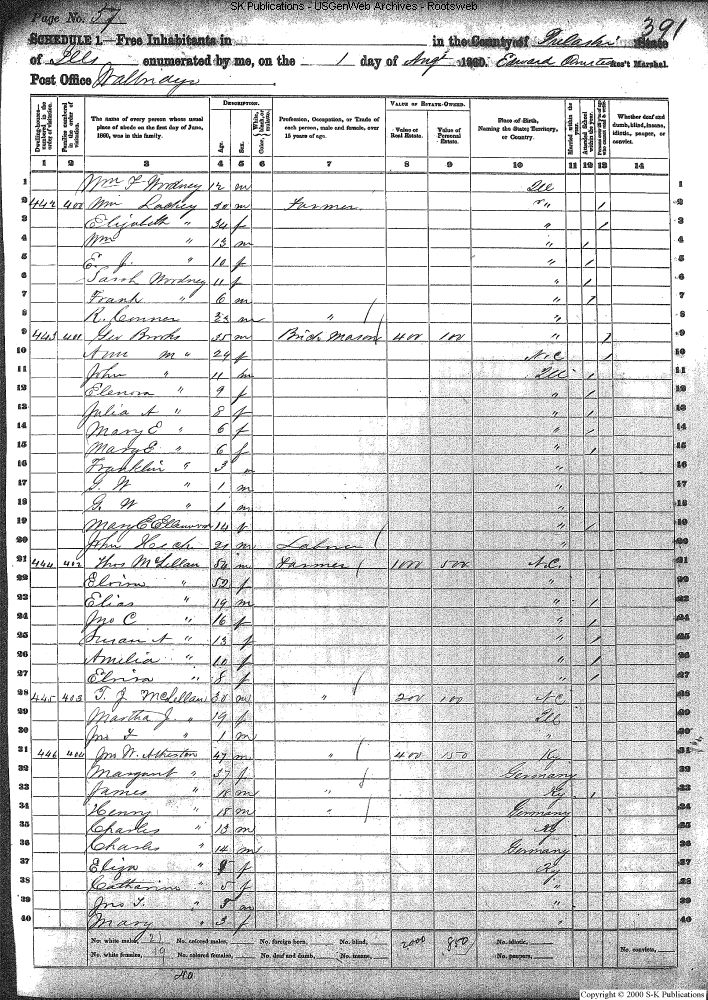 SK Publications - USGenWeb Archives - Rootsweb
Page No. 57
391
SCHEDULE 1.—Free Inhabitants in in the County of Pulaski State
of Ills enumerated by me, on the 1 day of Augt 1860. Edward Ass't Marshal.
Post Office
Dwelling-houses—numbered in the order of visitation.
Families numbered in the order of visitation.
The name of every person whose usual place of abode on the first day of June, 1860, was in this family.
DESCRIPTION.
Age.
Sex.
Color, White, black, or mulatto.
Profession, Occupation, or Trade of each person, male and female, over 15 years of age.
VALUE OF ESTATE OWNED.
Value of Real Estate.
Value of Personal Estate.
Place of Birth, Naming the State, Territory, or Country.
Married within the year.
Attended School within the year.
Whether deaf and dumb, blind, insane, idiotic, pauper, or convict.
1 2 3 4 5 6 7 8 9 10 11 12 13 14
1 Wm F Wordney 12 m Ill 1
2 442 400 Wm 30 m Farmer " / 2
3 Elizabeth " 34 f " / 3
4 Wm " 13 m " / 4
5 E. J. " 10 f " / 5
6 Sarah Wordney 11 f " / 6
7 Frank " 6 m " / 7
8 R. Conner 23 m " " 8
9 443 401 Geo Brooks 35 m Brick Mason 400 100 " / 9
10 Ann M " 29 f N.C / 10
11 John " 11 m Ill / 11
12 Elenora " 9 f " / 12
13 Julia A " 8 f " / 13
14 Mary E " 6 f " / 14
15 Mary E " 6 f " / 15
16 Franklin " 3 m " 16
17 G. W " 1 m " 17
18 G. W " 1 m " 18
19 Mary E 14 f " / 19
20 John 21 m Laborer " 20
21 444 402 Thos McLellan 54 m Farmer 1000 500 N.C. 21
22 Elvira " 52 f " 22
23 Elias " 19 m " / 23
24 Jno C " 16 f " / 24
25 Susan A " 13 f " / 25
26 Amelia " 10 f " / 26
27 Elvira " 8 f " / 27
28 445 403 T. J McLellan 30 m " 200 100 N.C 28
29 Martha J " 19 f Ill 29
30 Jno F " 1 m " 30
31 446 404 Jno W. Atherton 47 m " 400 150 Ky 31
32 Margaret " 37 f Germany 32
33 James " 18 m " Ky / 33
34 Henry " 18 m " Germany 34
35 Charles " 13 m Ky 35
36 Charles " 14 m Germany 36
37 Eliza " f Ky 37
38 Catharine " 5 f " 38
39 Jno T. " 3 m " 39
40 Mary " 3 f " 40
No. white males, 21 No. colored males, No. foreign born, No. blind, 2000 800 No. idiotic, No. convicts,
No. white females, 19 No. colored females, No. deaf and dumb, No. insane, No. paupers,
40
Copyright © 2000 S-K Publications